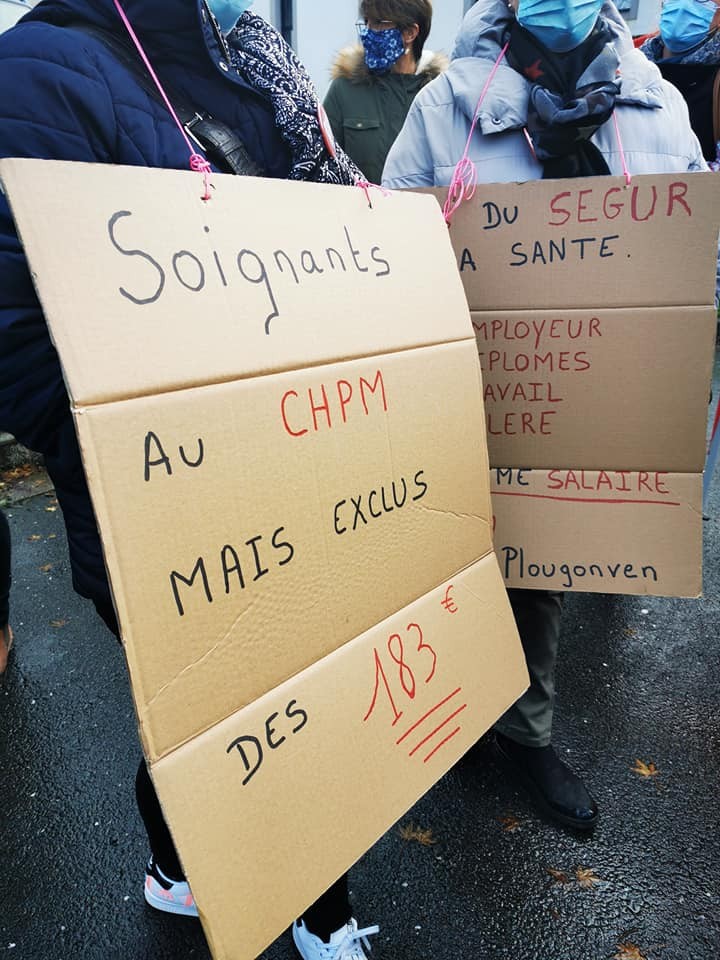 Soignants
AU CHPM
MAIS EXCLUS
DES 183 €
DU SEGUR
A SANTE.
MPLOYEUR
PLOMES
AVAIL
LERE
ME SALAIRE
Plougonven